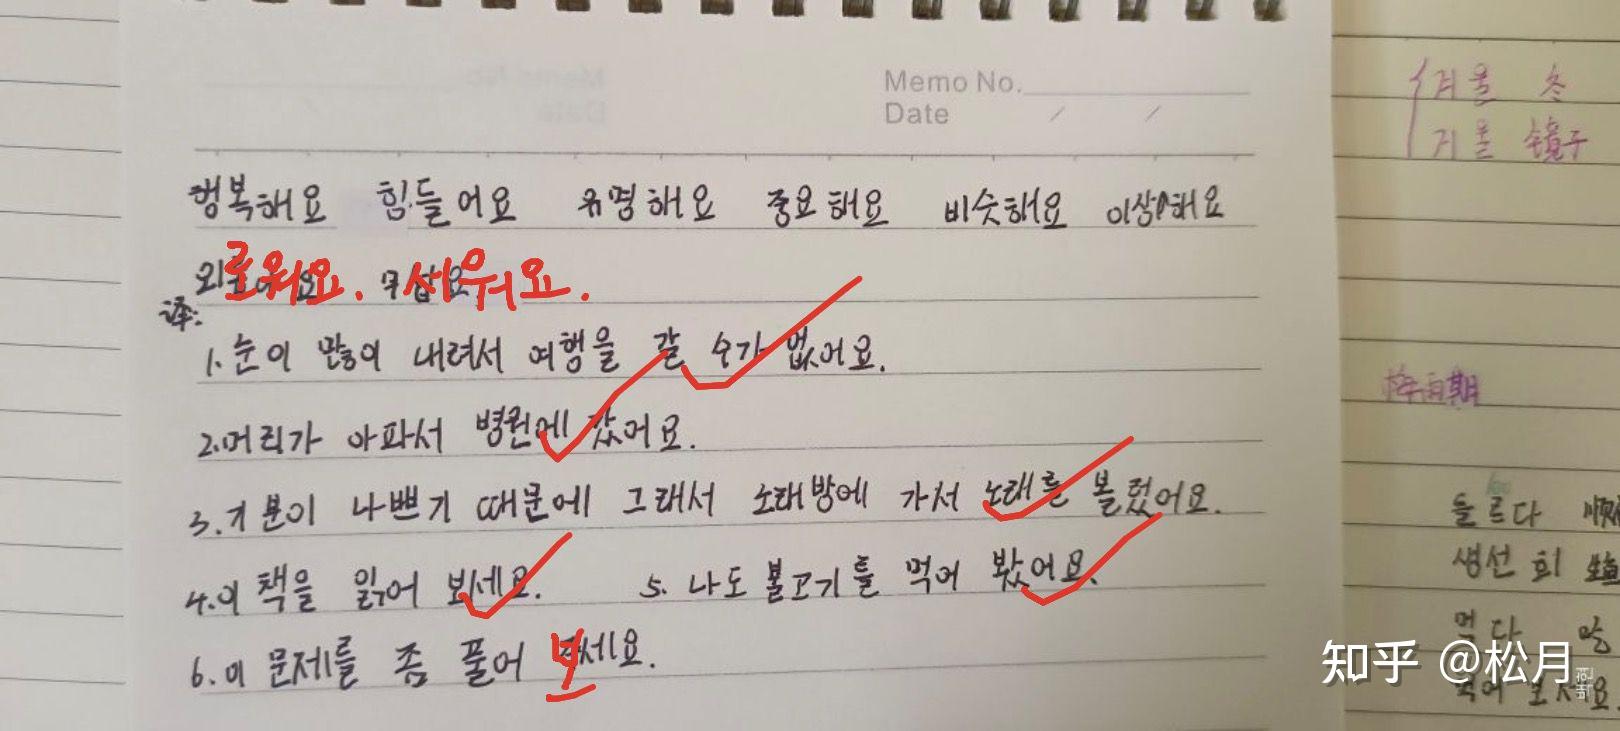 Memo No.
Date / /
행복해요 힘들어요 유명해요 중요해요 비슷해요 이상해요
외로워요. 무서워요.
译:
1. 눈이 많이 내려서 여행을 갈 수가 없어요.
2. 머리가 아파서 병원에 갔어요.
3. 기분이 나쁘기 때문에 그래서 노래방에 가서 노래를 불렀어요.
4. 이 책을 읽어 보세요. 5. 나도 불고기를 먹어 봤어요.
6. 이 문제를 좀 풀어 보세요.
겨울 冬
거울 镜子
梅雨期
들르다 顺
생선회 生鱼
먹다
먹어 보세요
知乎 @松月